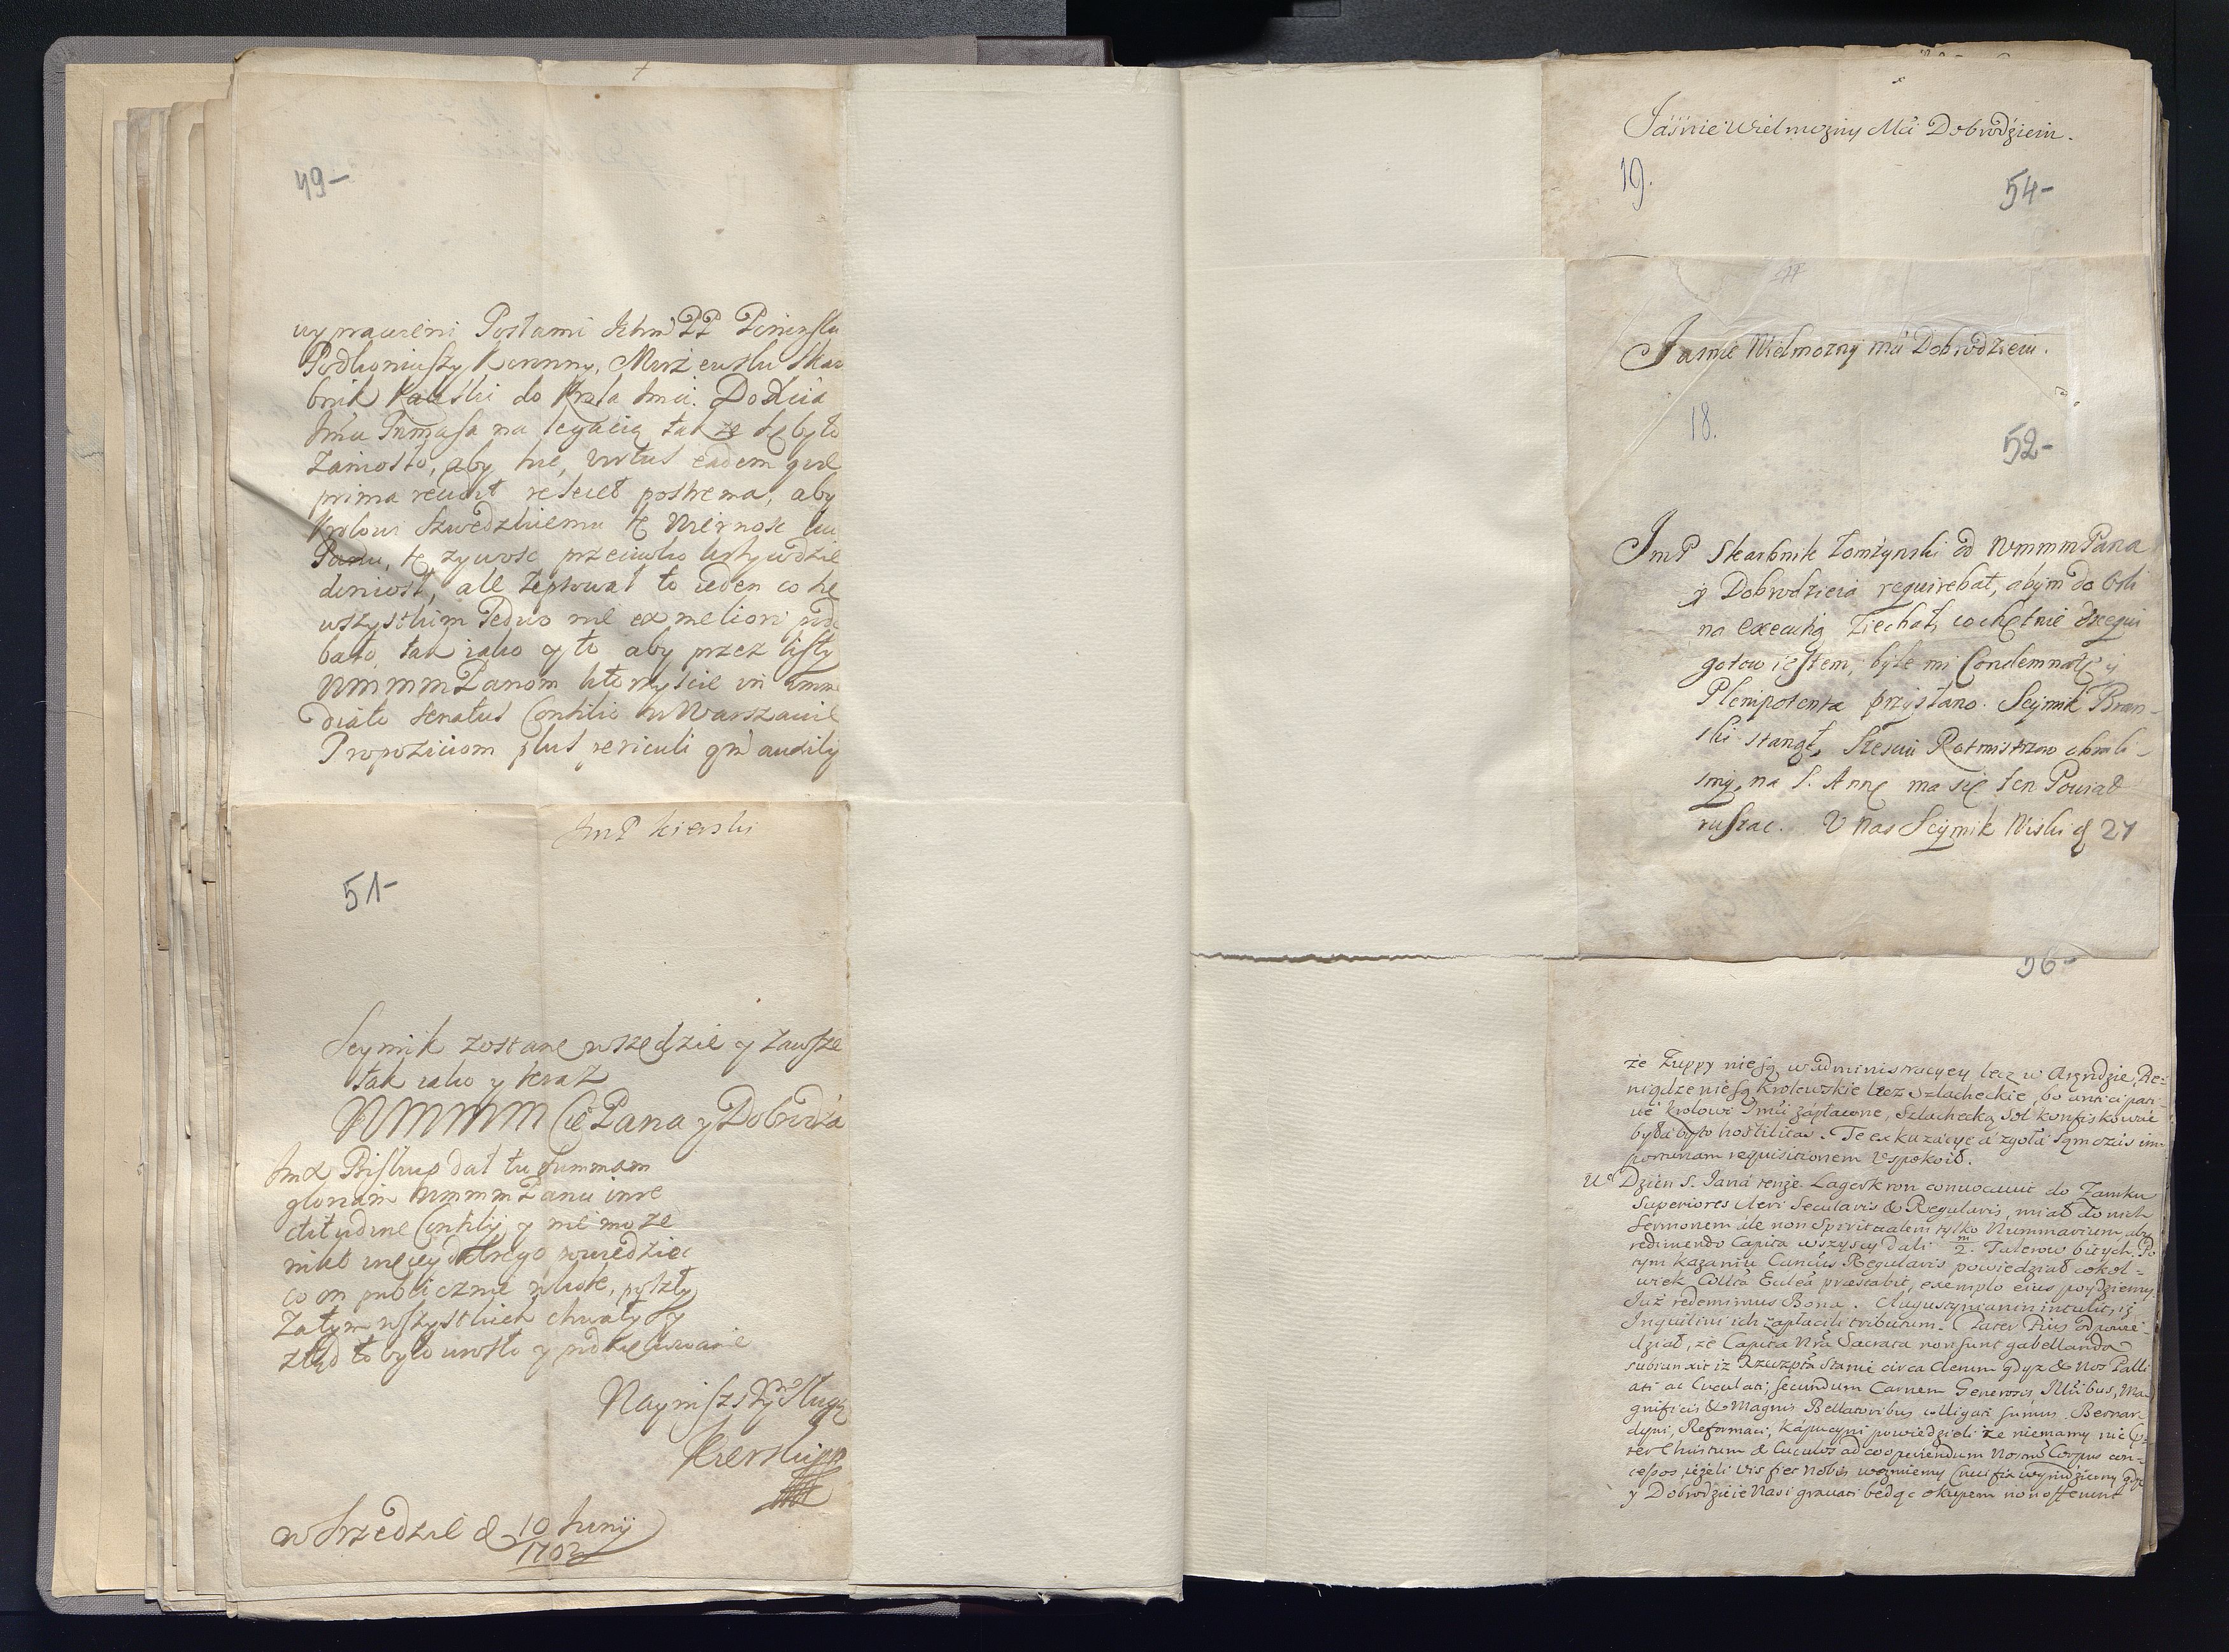 49-
wyprawieni Posłami Ichm PP Poninski
Podkoniuszy Koronny, Mirzewski Skar
bnik Kaliski do Krola Jmci. Dodaia
Jmci Prymasa na legacią tak ze by było
zaniosło, aby virtus eadem quae
prima reliquit postrema, aby
Krolowi Szwedzkiemu tę wiernosc ku
Panu, tę zywosc przeciwko
doniosł, ale zepsował to ieden co ze
wszystkim Pedno nie ex meliori
bało, tak iako y to aby przez listy
WmmmPanom ktorzyscie in imme
diato Senatus Consilio w Warszawie
Propozitiom plus periculi qm auxilij
JmP Kierski
51-
Seymik zostane wszędzie y zawsze
tak iako y teraz
WMMMM Pana y Dobrodzia
JmX Biskup dał tu summam
gloriam WmmmPanu in re
ctitudine Consilij y nie moze
nikt więcey dobrego powiedziec
co on publicznie
Zatym wszystkich chwały
zkąd to było urosło y
Nayniższym Sługą
Kierski
w Srzedzie d 10 Junij
1702
Jáśnie Wielmozny Mći Dobrodzieiu.
19.
54-
Jasnie Wielmozny mći Dobrodzieiu.
18.
52-
JmP Skarbnik Łomżynski od WmmmPana
y Dobrodzieia requirebat, abym do
na execucią ziechał, co chętnie exequi
gotow iestem, byle mi Condemnatę y
Plenipotentią przysłano. Seymik Bran-
ski stanął, Sześciu Rotmistrzow obrali-
smy, na S. Annę ma się ten Powiat
ruszac. U nas Seymik Wiski d 27
56-
że Żuppy nie są w administracyey lecz w Arendzie, Re-
nigdzie nie są Krolewskie lecz Szlacheckie, bo anticipati-
ve Krolowi Jmći zápłacone, Szlachecką Sol konfiskować
byłaby to hostilitas. Te exkuzacye á zgołá
portunam requisitionem uspokoił.
Dzien S. Janá tenże Lagerkron convocavit do Zamku
Superiores Cleri Secularis & Regularis, miał do nich
Sermonem ále non Spiritualem tylko Nummarium, aby
redimendo Capita wszyscy dali m/2. Talerow bitych. Po
tym kázaniu Canćus Regularis powiedział cokol-
wiek Collta Ecclea praestabit, exemplo eius poydziemy.
Już redemimus Bona. Augustynianin intulit, iż
Inquilini ich zapłacili tributum. Pater Pius odpowie-
dział, że Capita Nrá Sacrata non sunt gabellanda
subiunxit iż Rzeczpta stanie circa Clerum gdyż & Nos Palli
ati ac Cuculati, secundum Carnem Generosis Illribus, Ma-
gnificis & Magnis Bellatoribus colligati sumus. Bernar-
dyni, Reformaci, Kapucyni powiedzieli że niemamy nic
ter Christum & Cuculos ad cooperiendum Nostrum Corpus con-
cessos, ieżeli vis fiet nobis weźmiemy Crucifix wynidziemy gdyż
y Dobrodzieie Nasi gravati będąc okupem non offerunt